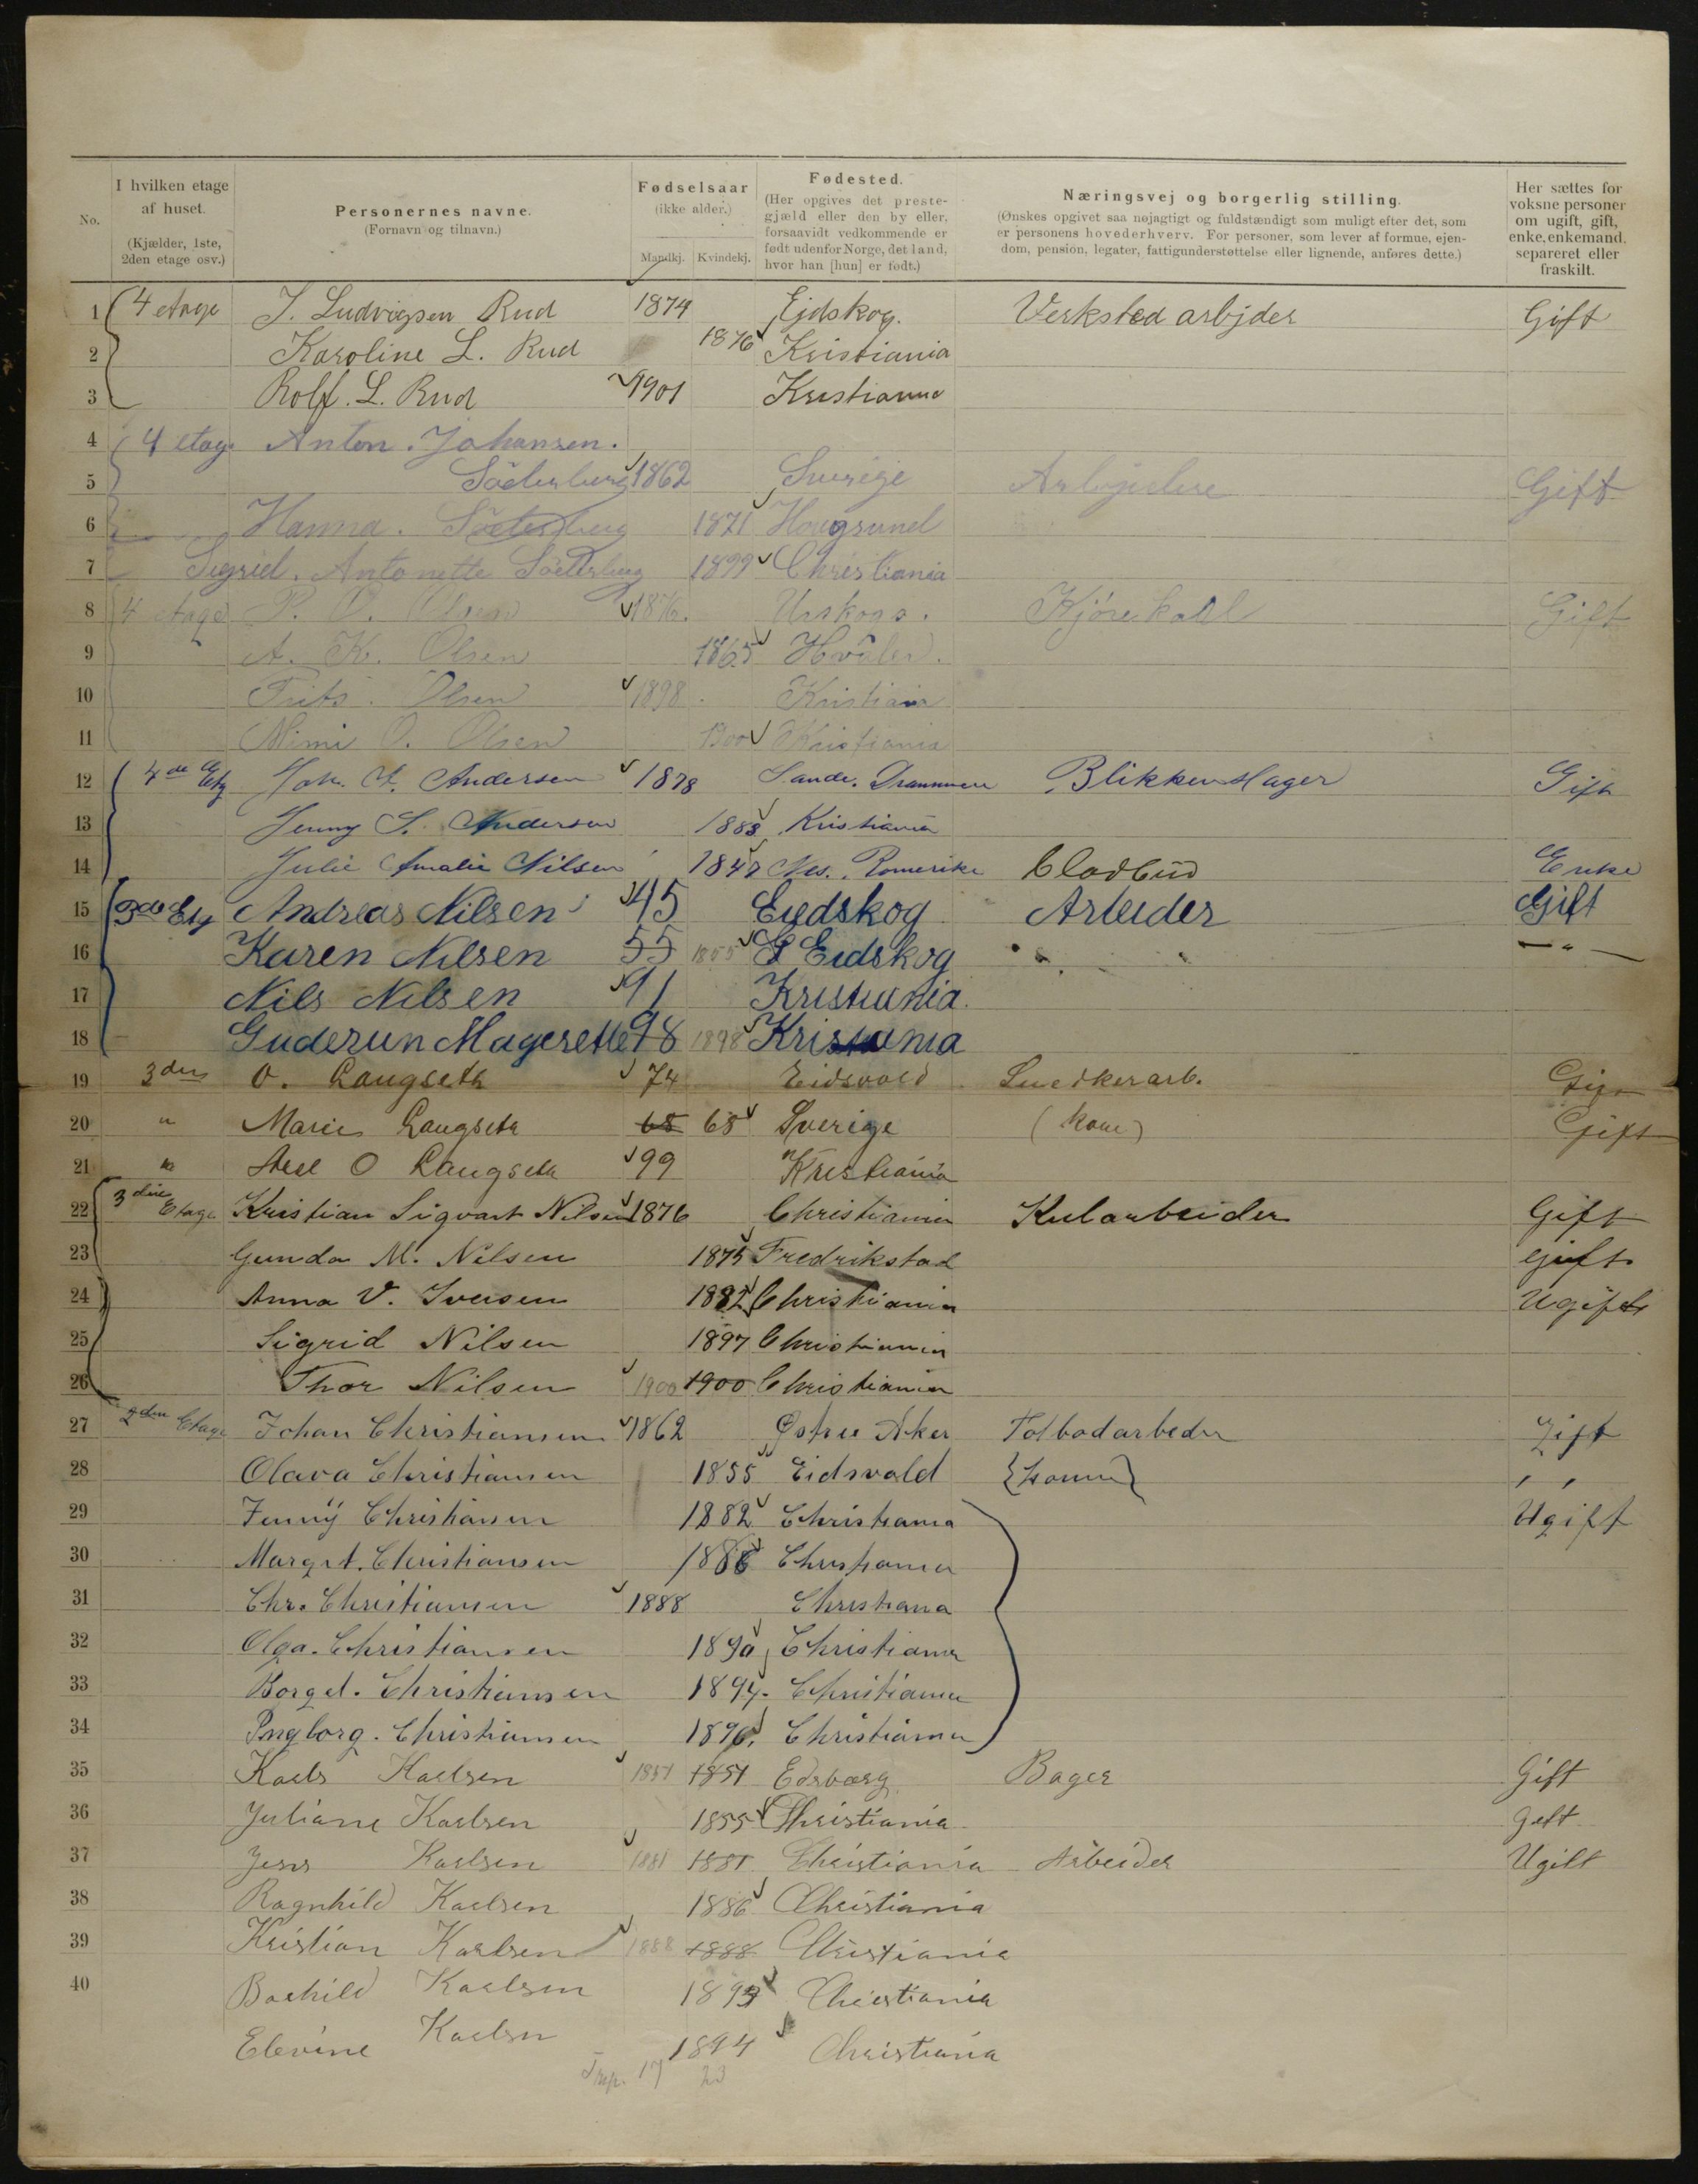 No.
I hvilken etage af huset. (Kjælder, 1ste, 2den etage osv.)
Personernes navne. (Fornavn og tilnavn.)
Fødselsaar (ikke alder.) Mandkj. Kvindekj.
Fødested. (Her opgives det prestegjæld eller den by eller, forsaavidt vedkommende er født udenfor Norge, det land, hvor han [hun] er født.)
Næringsvej og borgerlig stilling. (Ønskes opgivet saa nøjagtigt og fuldstændigt som muligt efter det, som er personens hovederhverv. For personer, som lever af formue, ejendom, pension, legater, fattigunderstøttelse eller lignende, anføres dette.)
Her sættes for voksne personer om ugift, gift, enke, enkemand, separeret eller fraskilt.
1 4 etage J. Ludvigsen Rud 1874 Ejdskog. Verksted arbjder Gift
2 Karoline L. Rud 1876 Kristiania
3 Rolf. L. Rud 1901 Kristiania
4 4 etage Anton. Johansen.
5 Söderberg 1862 Sverige Arbejdere Gift
6 Hanna. Söderberg 1871 Hougsund
7 Sigrid. Antonette Söderberg 1899 Christiania
8 4 etage P. O. Olsen 1876. Urskog. Kjørekarl Gift
9 A. K. Olsen 1865 Hvaler.
10 Frits. Olsen 1898. Kristiania
11 Mimi O. Olsen 1900 Kristiania
12 4de Etg Joh. A. Andersen 1878 Sande. Drammen Blikkenslager Gift
13 Jenny S. Andersen 1883 Kristiania
14 Julie Amalie Nilsen 1847 Nes. Romerike Enke
15 3de Etg Andreas Nilsen 45 Eidskog Arbeider Gift
16 Karen Nilsen 55 1855 Eidskog — " —
17 Nils Nilsen 91 Kristiania.
18 Guderun Magerette 98 1898 Kristiania
19 3die O. Laugseth 74 Eidsvold Snedkerarb. Gift
20 " Marie Laugseth 68 68 Sverige (kone) Gift
21 " O Laugseth 99 Kristiania
22 3die Etage Kristian Sigvart Nilsen 1876 Christiania Kularbeider Gift
23 Gunda M. Nilsen 1875 Fredrikstad Gift
24 Anna V. Iversen 1882 Christiania Ugift
25 Sigrid Nilsen 1897 Christiania
26 Thor Nilsen 1900 1900 Christiania
27 2den Etage Johan Christiansen 1862 Østre Aker Tolbodarbeder Gift
28 Olava Christiansen 1855 Eidsvold {konne} " "
29 Jenny Christiansen 1882 Christiania Ugift
30 Margit. Christiansen 1886 Christiania
31 Chr. Christiansen 1888 Christiana
32 Olga. Christiansen 1890 Christiania
33 Borgel. Christiansen 1894. Christiania
34 Ingborg. Christiansen 1896. Christiania
35 Karls Karlsen 1851 1851 Edsberg Bager Gift
36 Juliane Karlsen 1855 Christiania Gift
37 Jens Karlsen 1881 1881 Christiania Arbeider Ugift
38 Ragnhild Karlsen 1886 Christiania
39 Kristian Karlsen 1888 1888 Christiania
40 Borhild Karlsen 1893 Christiania
Elevine Karlsen 1894 Christiania
17 23